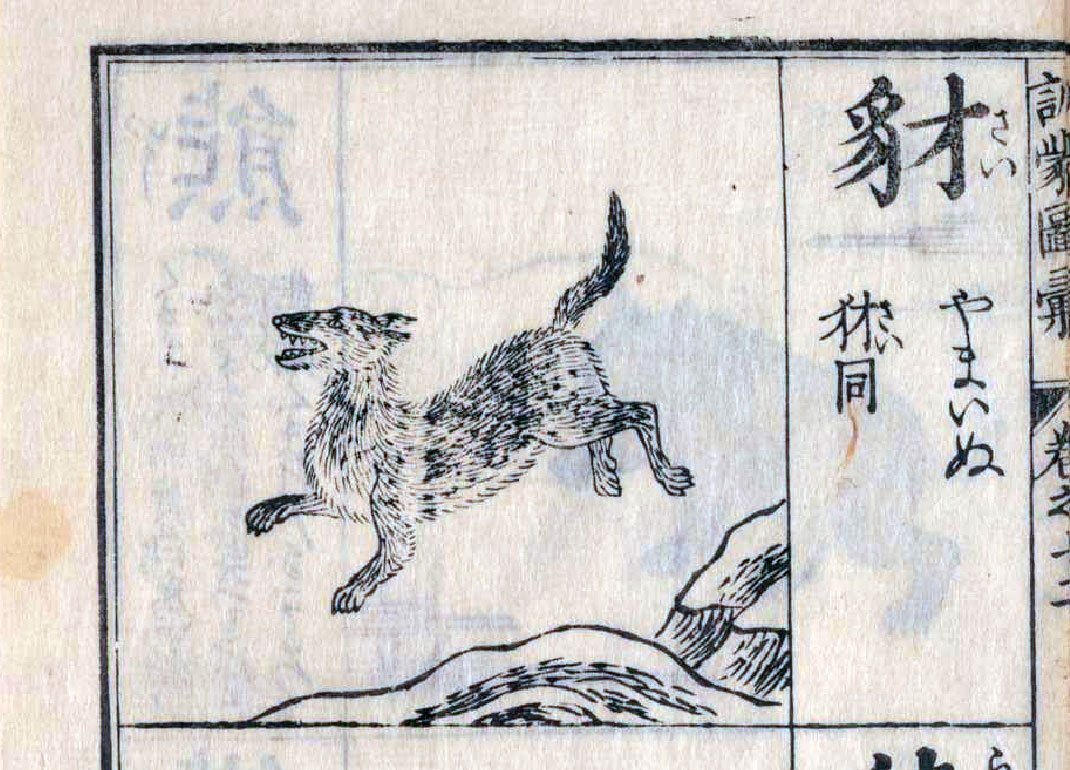 訓蒙圖彙
卷之十二
豺
さい
やまいぬ
犲
さい
同